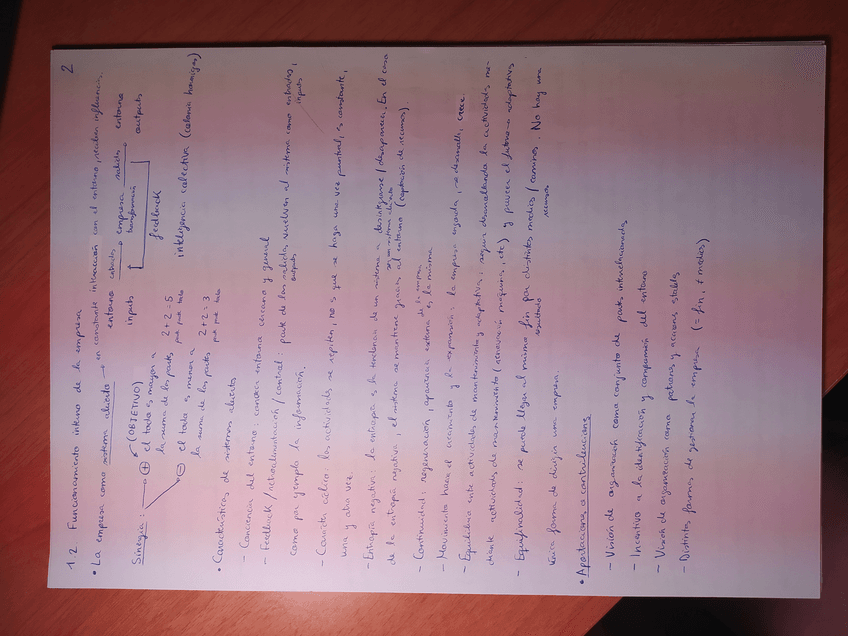 2
1.2 Funcionamiento interno de la empresa
• La empresa como sistema abierto → en constante interacción con el entorno, reciben influencias.
entorno entradas → empresa salidas → entorno
inputs transformación outputs
feedback
Sinergia: + (OBJETIVO) el todo es mayor a la suma de las partes 2+2=5
- el todo es menor a la suma de las partes 2+2=3
inteligencia colectiva (colonia hormigas)
• Características de sistemas abiertos
- Conciencia del entorno: conocer entorno cercano y general
- Feedback / retroalimentación / control: parte de las salidas vuelven al sistema como entradas,
outputs inputs
como por ejemplo la información.
- Carácter cíclico: las actividades se repiten, no es que se haga una vez puntual, es constante,
una y otra vez.
- Entropía negativa: la entropía es la tendencia de un sistema a desintegrarse / desaparecer. En el caso
de la entropía negativa, el sistema se mantiene gracias al entorno (captación de recursos).
- Continuidad: regeneración, apariencia externa es la misma
de la empresa
- Movimiento hacia el crecimiento y la expansión: la empresa exitosa, se desarrolla, crece.
- Equilibrio entre actividades de mantenimiento y adaptativas: seguir desarrollando la actividad me-
diante actividades de mantenimiento ( máquinas, etc) y prever el futuro → adaptativas
- Equifinalidad: se puede llegar al mismo fin por distintos medios / caminos. No hay una
resultado recursos
única forma de dirigir una empresa.
• Aportaciones o contribuciones
- Visión de organización como conjunto de partes interrelacionadas
- Incentivo a la identificación y comprensión del entorno
- Visión de organización como patrones y acciones estables
- Distintas formas de gestionar la empresa (= fin, ≠ medios)